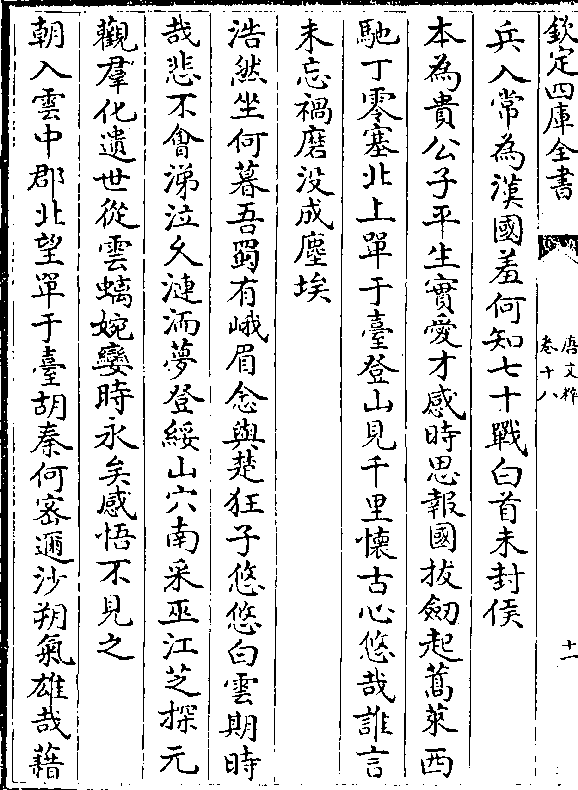 欽定四庫全書
唐文粹
卷十八
十一
兵入常為漢國羞何知七十戰白首未封侯
本為貴公子平生實愛才感時思報國拔劒起蒿萊西
馳丁零塞北上單于臺登山見千里懷古心悠哉誰言
未忘禍磨没成塵埃
浩然坐何暮吾蜀有峨眉念與楚狂子悠悠白雲期時
哉悲不㑹涕泣久漣洏夢登綏山穴南采巫江芝探元
觀羣化遺世從雲螭婉孌時永矣感悟不見之
朝入雲中郡北望單于臺胡秦何密邇沙朔氣雄哉藉